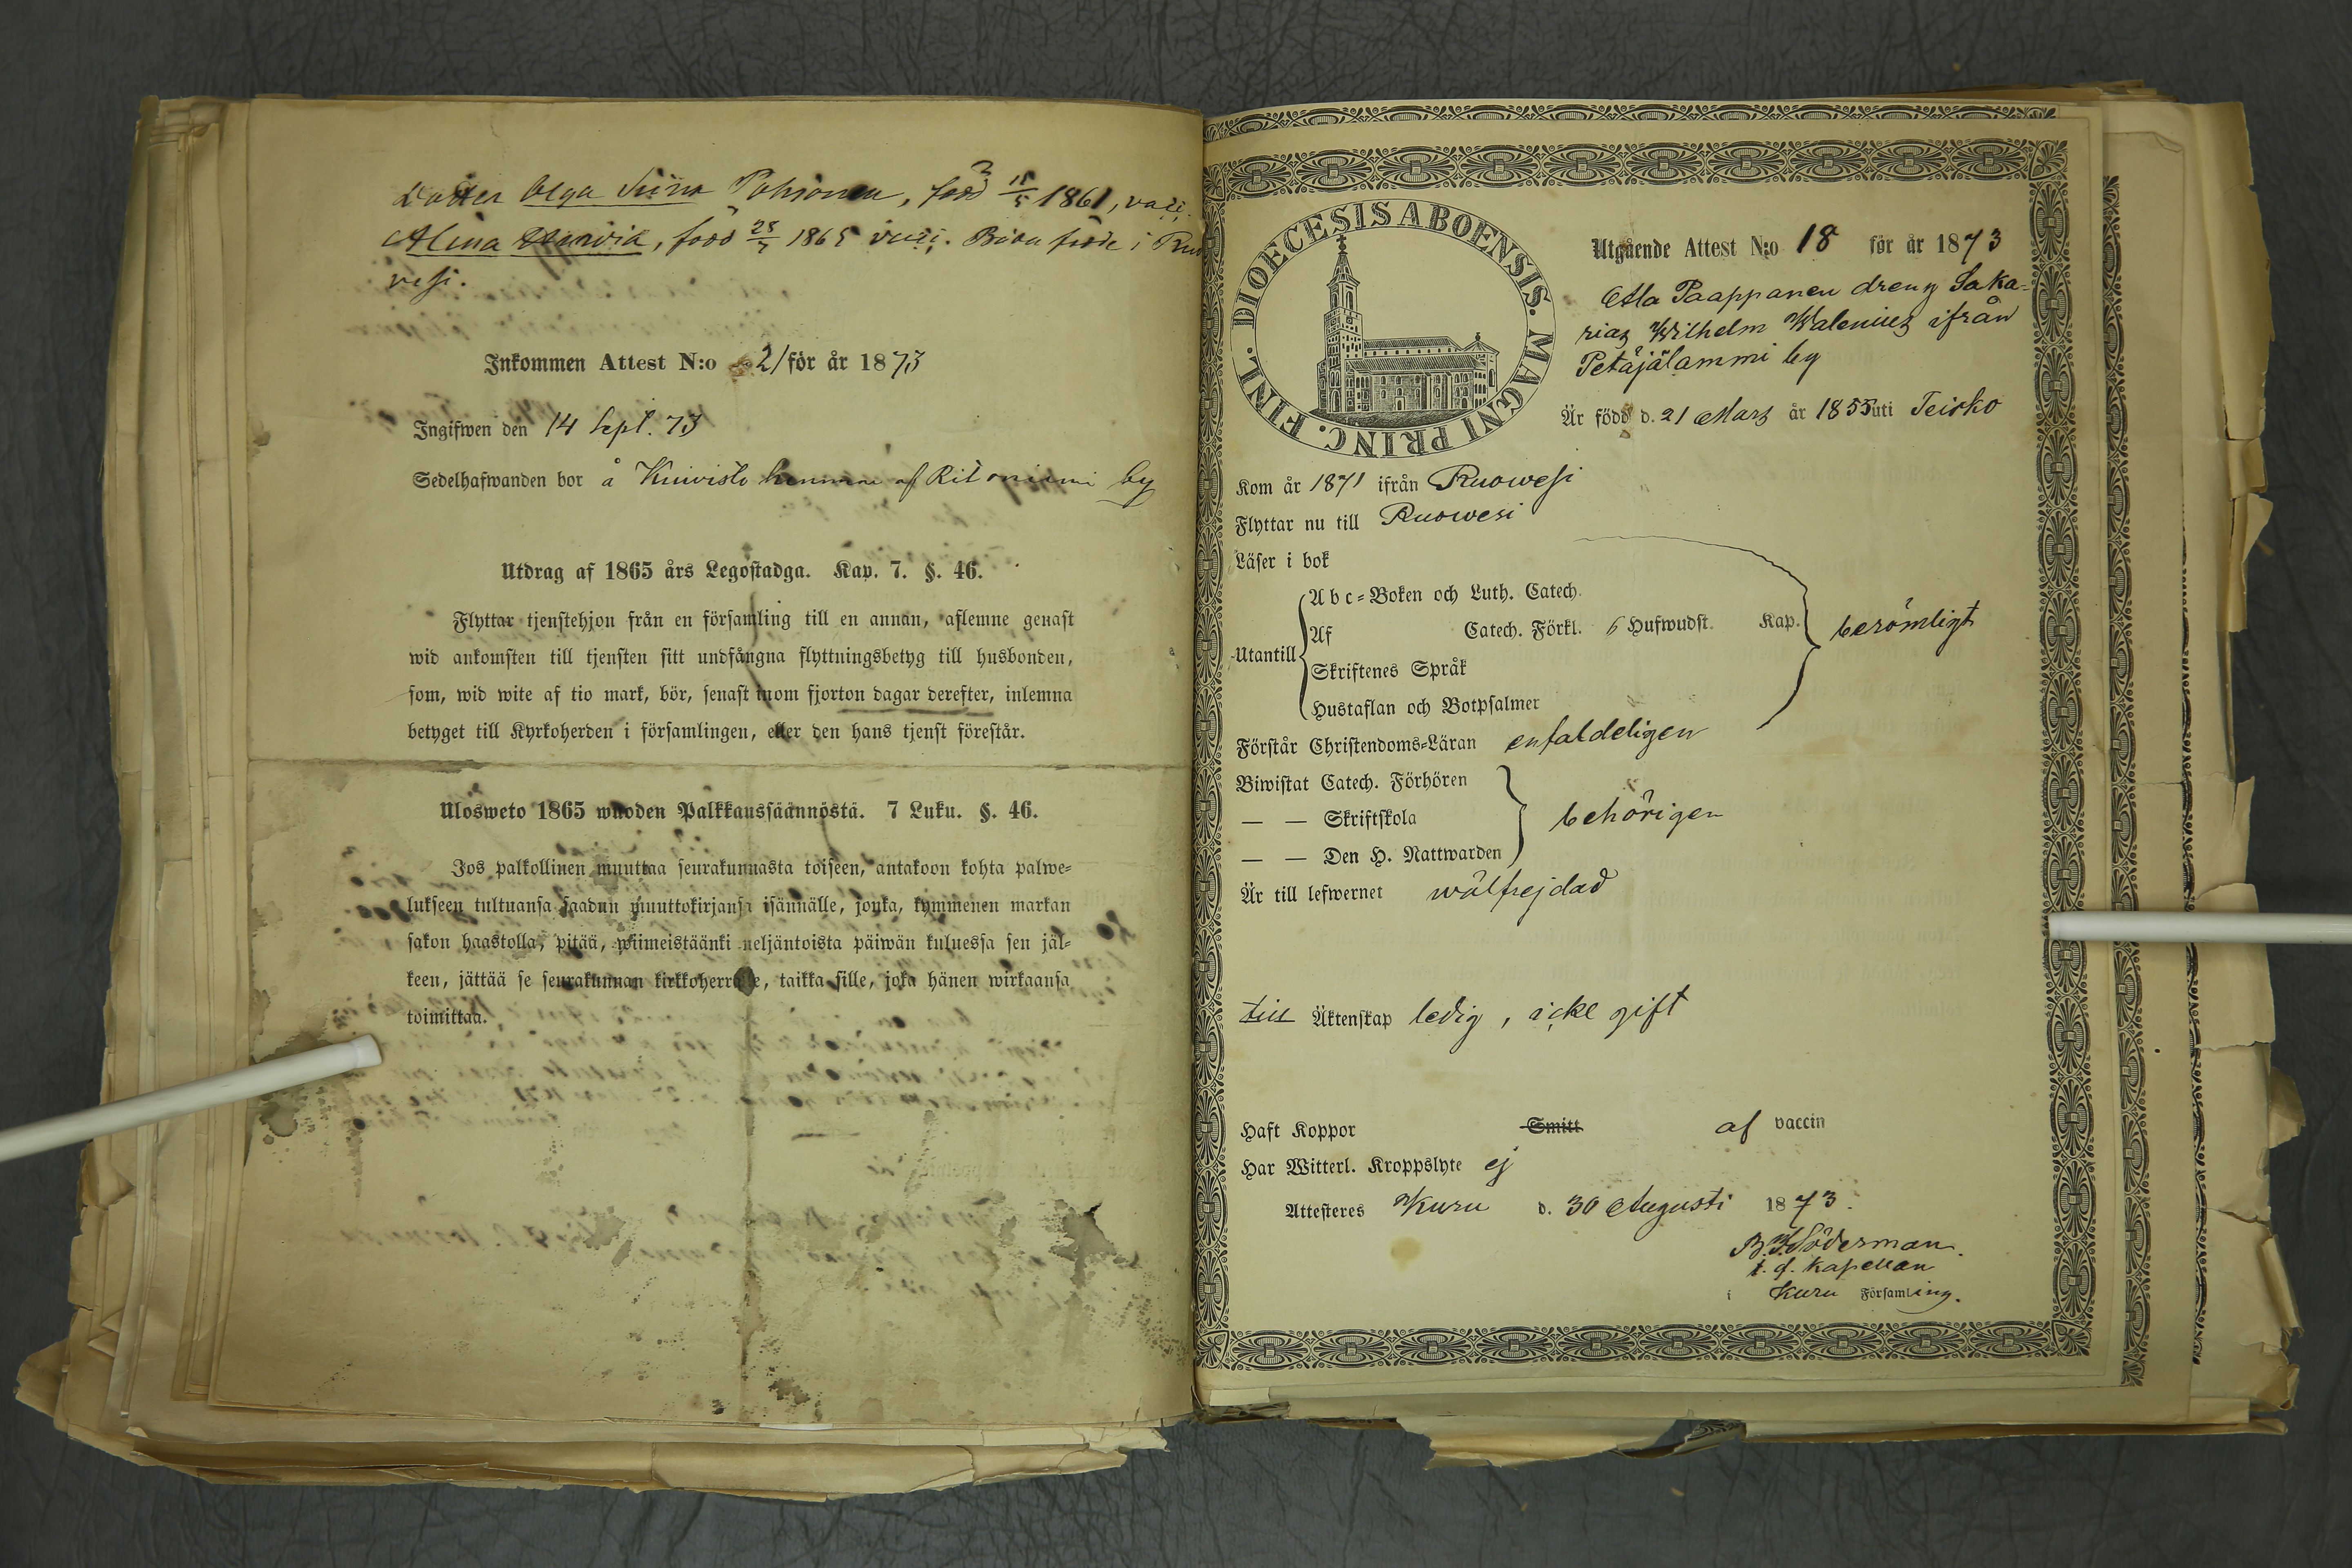 Dotter Olga Siina Pohjonen, född 15/5 1861, vacc.
Alina, född 28/7 1865 vacc. Båda födde i Ruo
vesi.
Inkommen Attest N:o 21 för år 1873
Ingifwen den 14 Sept. 73
Sedelhafwanden bor å Kuivisto hemman af Ritoniemi by
Utdrag af 1865 års Legostadga. Kap. 7. §. 46.
Flyttar tjenstehjon från en församling till en annan, aflemne genast
wid ankomsten till tjensten sitt undfångna flyttningsbetyg till husbonden,
som, wid wite af tio mark, bör, senast inom fjorton dagar derefter, inlemna
betyget till Kyrkoherden i församlingen, eller den hans tjenst förestår.
Ulosweto 1865 wuoden Palkkaussäännöstä. 7 Luku. §. 46.
Jos palkollinen muuttaa seurakunnasta toiseen, antakoon kohta palwe=
lukseen tultuansa saadun muuttokirjansa isännälle, jonka, kymmenen markan
sakon haastolla, pitää, wiimeistäänki neljäntoista päiwän kuluessa sen jäl=
keen, jättää se seurakunnan kirkkoherralle, taikka sille, joka hänen wirkaansa
toimittaa.
DIOECESIS ABOENSIS. MAGNI PRINC. FINL.
Utgående Attest N:o 18 för år 1873
Ala Paappanen dreng Saka=
rias Wilhelm Walenius ifrån
Petäjälammi by
Är född d. 21 Mars år 1855 uti Teisko
Kom år 1871 ifrån Ruowesi
Flyttar nu till Ruowesi
Läser i bok
Utantill
Abc=Boken och Luth. Catech.
Af Catech. Förkl. 6 Hufwudst. Kap.
Skriftenes Språk
Hustaflan och Botpsalmer
berömligt
Förstår Christendoms=Läran enfaldeligen
Biwistat Catech. Förhören
— — Skriftskola
— — Den H. Nattwarden
behörigen
Är till lefwernet wälfrejdad
till Äktenskap ledig, icke gift
Haft Koppor Smitt af vaccin
Har Witterl. Kroppslyte ej
Attesteres Kuru d. 30 Augusti 1873.
B. Söderman.
t. f. kapellan
i Kuru Församling.